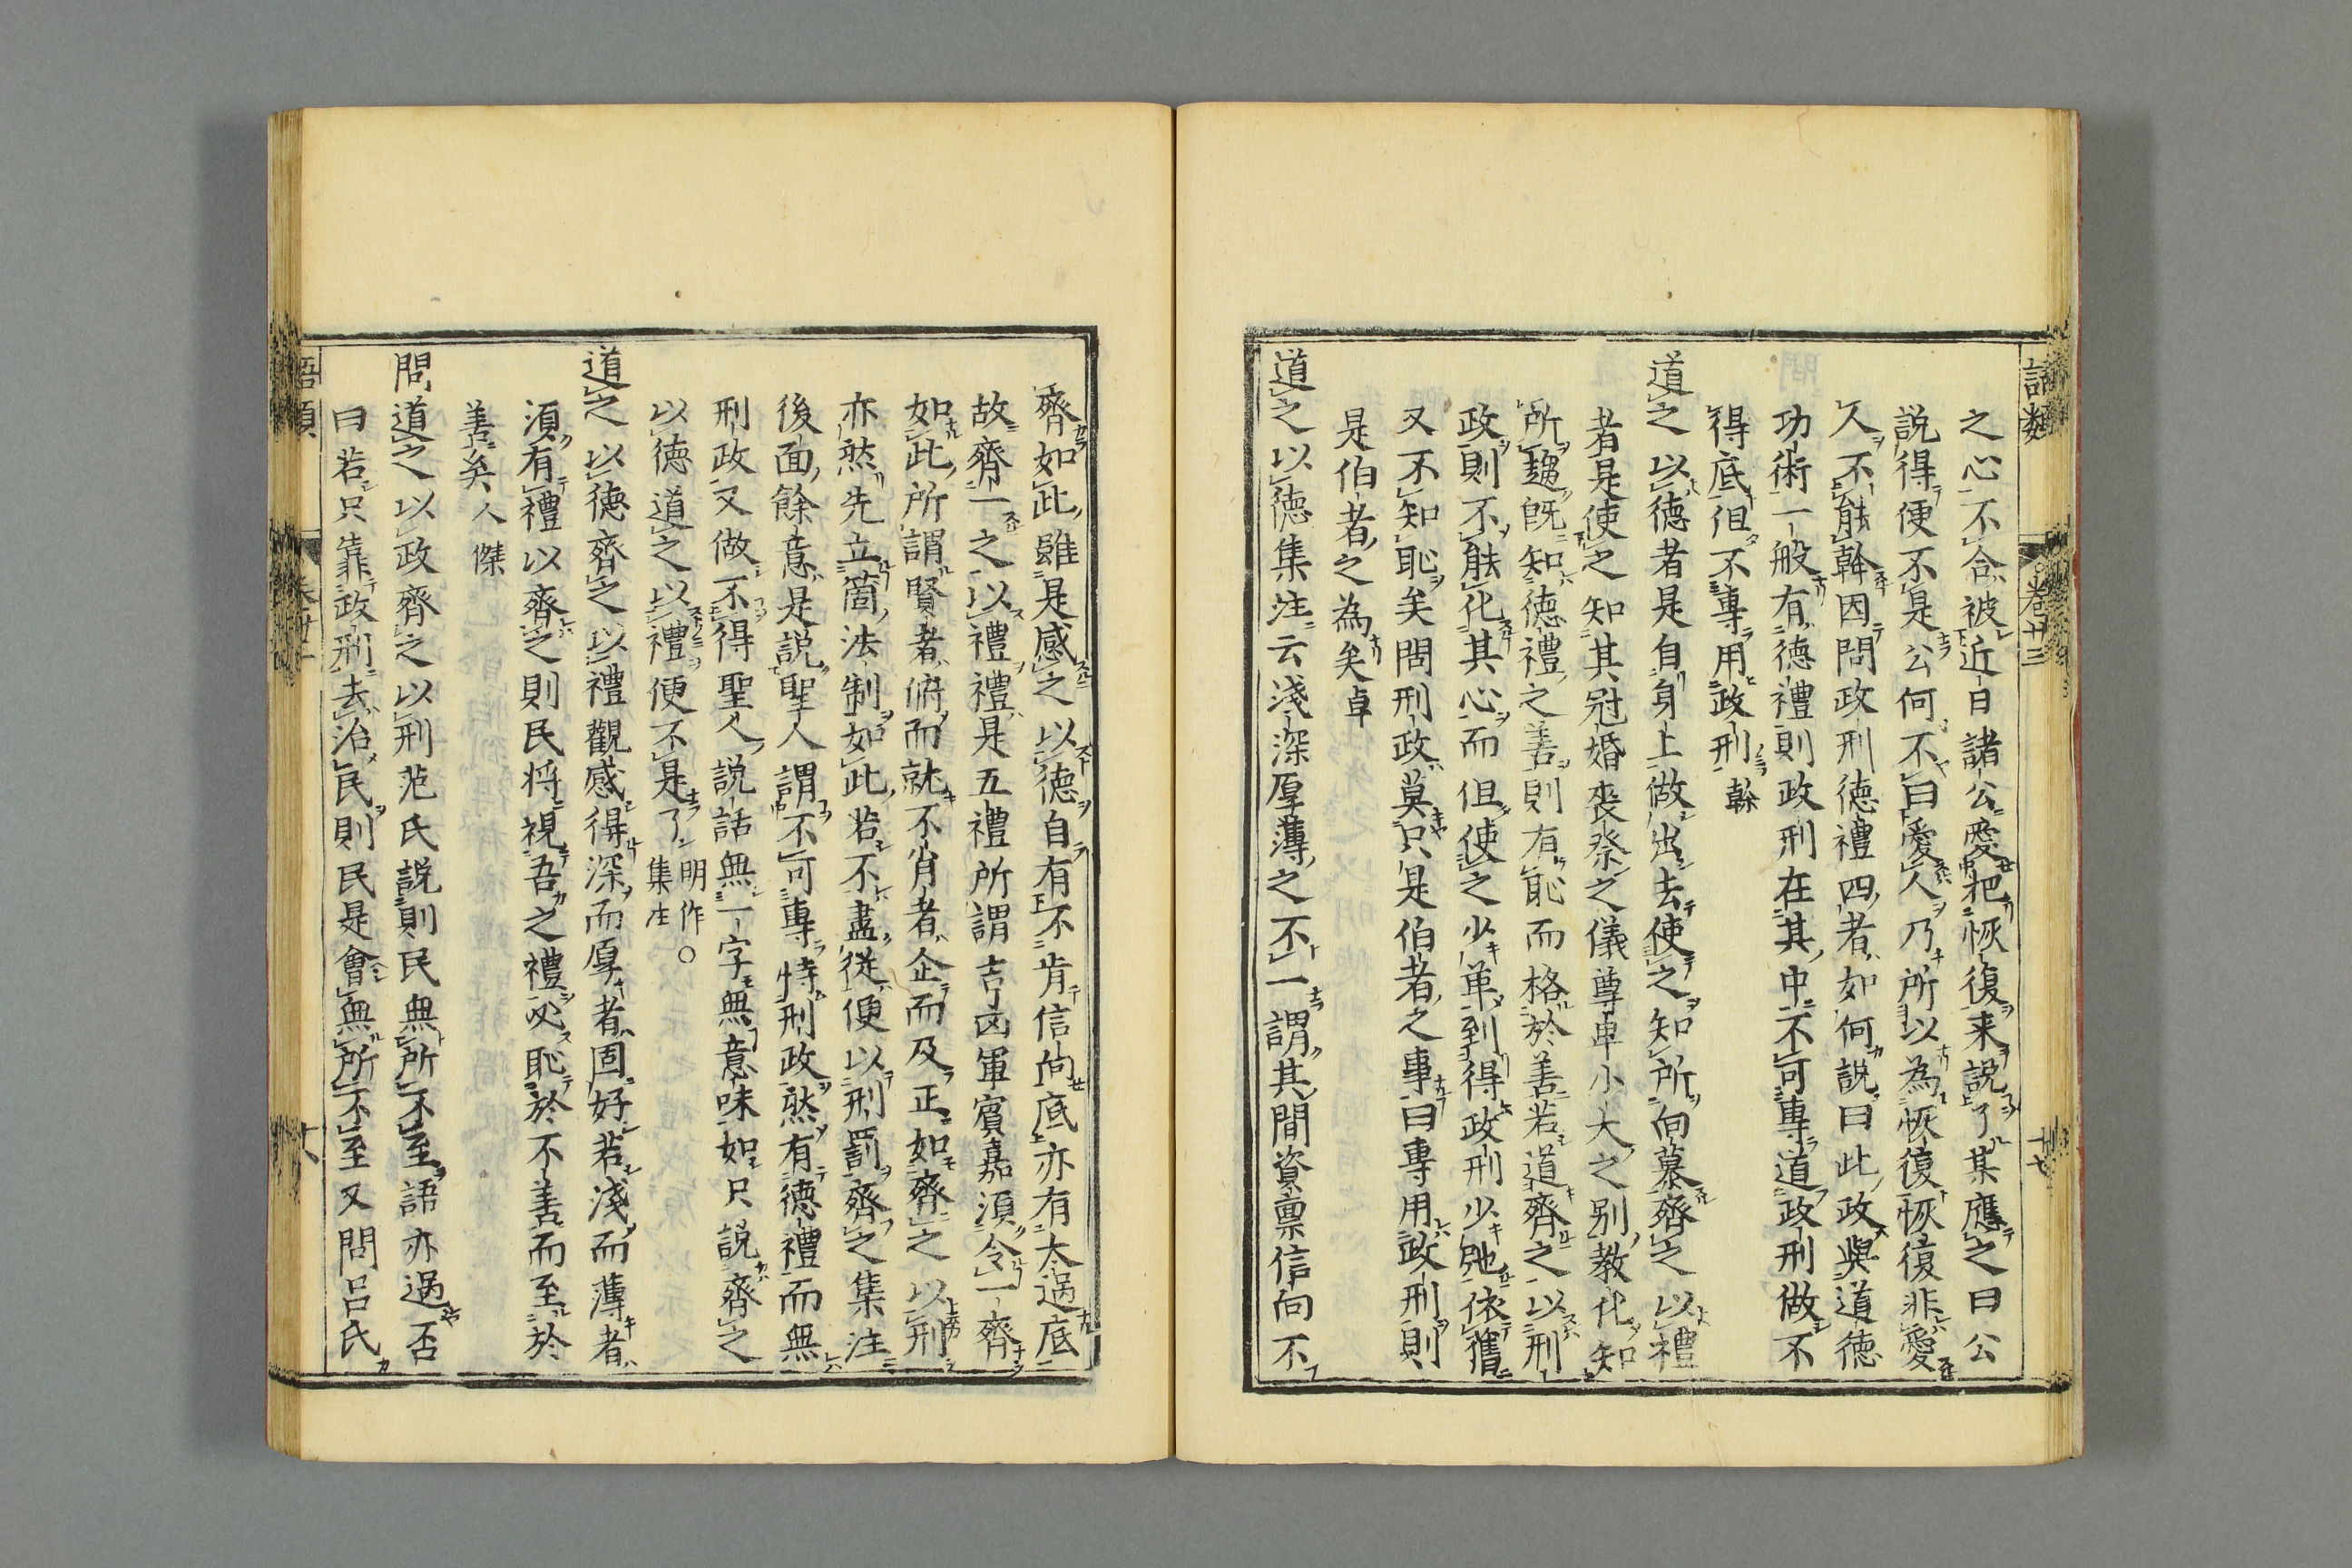 語類
卷廿三
十七
之心不合被近日諸公愛把恢復来説了某應之曰公
説得便不是公何不曰愛人乃所以為恢復恢復非愛
人不能幹因問政刑德禮四者如何説曰此政與道德
功術一般有德禮則政刑在其中不可專道政刑做不
得底但不專用政刑幹
道之以德者是自身上做出去使之知所向慕齊之以禮
者是使之知其冠婚喪祭之儀尊卑小大之别教化知
所趨既知德禮之善則有恥而格於善若道齊之以刑
政則不能化其心而但使之少革到得政刑少弛依舊
又不知恥矣問刑政莫只是伯者之事曰專用政刑則
是伯者之為矣卓
道之以德集注云淺深厚薄之不一謂其間資稟信向不
齊如此雖是感之以德自有不肯信向底亦有太過底
故齊一之以禮禮是五禮所謂吉凶軍賓嘉須令一齊
如此所謂賢者俯而就不肖者企而及正如齊之以刑
亦然先立箇法制如此若不盡從便以刑罰齊之集注
後面餘意是説聖人謂不可專恃刑政然有德禮而無
刑政又做不得聖人説話無一字無意味如只説齊之
以德道之以禮便不是了明作○集注
道之以德齊之以禮觀感得深而厚者固好若淺而薄者
須有禮以齊之則民将視吾之禮必恥於不善而至於
善矣人傑
問道之以政齊之以刑范氏説則民無所不至語亦過否
曰若只靠政刑去治民則民是會無所不至又問呂氏
語類